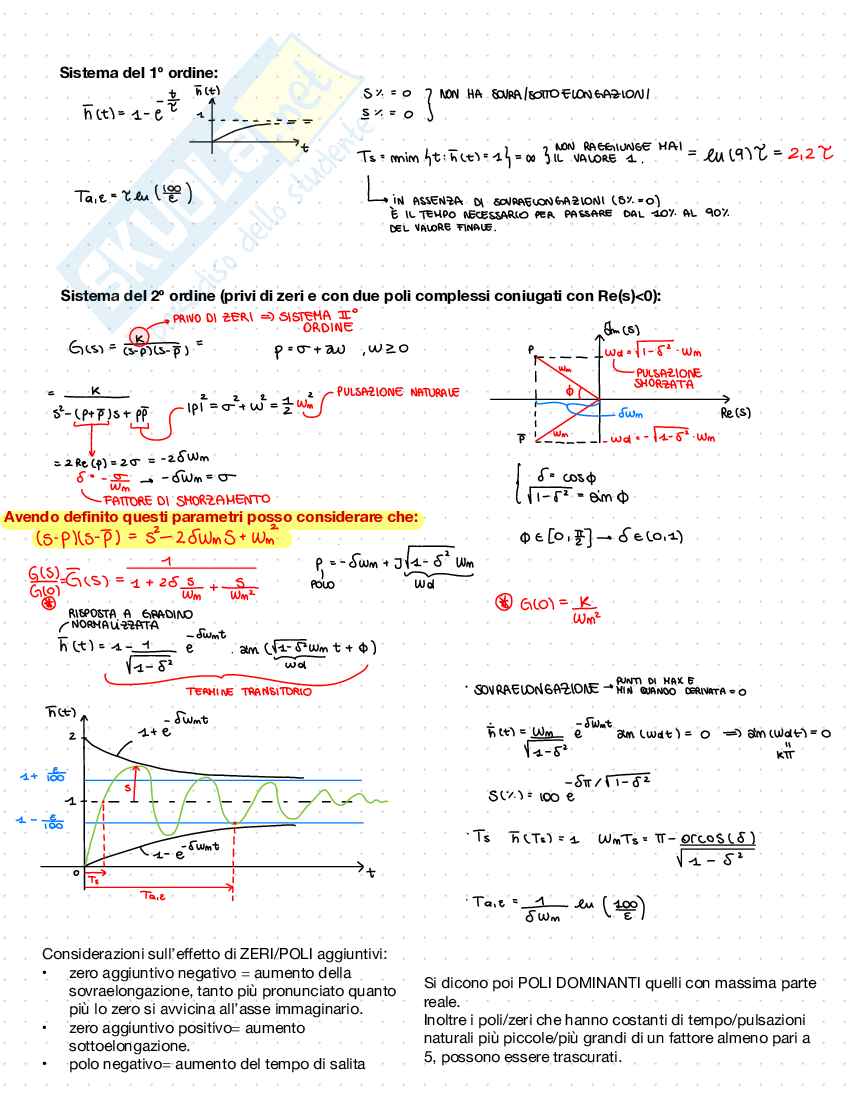 Sistema del 1° ordine:
h̄(t) = 1 - e^(-t/τ)
h̄(t)
1
t
S% = 0
S% = 0
} NON HA SOVRA/SOTTOELONGAZIONI
Ts = min {t: h̄(t) = 1} = ∞ } NON RAGGIUNGE MAI IL VALORE 1. = ln(9)τ = 2,2τ
Ta,ε = τ ln(100/ε)
→ IN ASSENZA DI SOVRAELONGAZIONI (S%=0)
È IL TEMPO NECESSARIO PER PASSARE DAL 10% AL 90%
DEL VALORE FINALE.
SKUOLA.net
paradiso dello studente
Sistema del 2° ordine (privi di zeri e con due poli complessi coniugati con Re(s)<0):
→ PRIVO DI ZERI ⇒ SISTEMA II°
ORDINE
G(s) = K/((s-p)(s-p̄)) =
p = σ + jω , ω ≥ 0
= K/(s²-(p+p̄)s + pp̄)
|p|² = σ² + ω² = 1/2 ωm²
PULSAZIONE NATURALE
= 2Re(p) = 2σ = -2δωm
δ = -σ/ωm → -δωm = σ
FATTORE DI SMORZAMENTO
Im(s)
P
ωd = √(1-δ²) · ωm
PULSAZIONE
SMORZATA
ωm
φ
δωm
Re(s)
P̄
ωm
-ωd = -√(1-δ²) · ωm
{ δ = cosφ
√(1-δ²) = sin φ
φ ∈ [0, π/2] → δ ∈ (0,1)
Avendo definito questi parametri posso considerare che:
(s-p)(s-p̄) = s² - 2δωm s + ωm²
G(s)/G(0) = Ḡ(s) = 1/(1 + 2δ s/ωm + s/ωm²)
P = -δωm + J√(1-δ²) ωm
POLO
ωd
* G(0) = K/ωm²
RISPOSTA A GRADINO
NORMALIZZATA
h̄(t) = 1 - 1/√(1-δ²) e^(-δωmt) · sin(√(1-δ²)ωm t + φ)
ωd
TERMINE TRANSITORIO
h̄(t)
2
1 + e^(-δωmt)
1 + ε/100
1
S
1 - ε/100
1 - e^(-δωmt)
0
Ts
t
Ta,ε
· SOVRAELONGAZIONE → PUNTI DI MAX E
MIN QUANDO DERIVATA = 0
ḣ(t) = ωm/√(1-δ²) e^(-δωmt) sin(ωdt) = 0 ⇒ sin(ωdt) = 0
kπ
S(%) = 100 e^(-δπ/√(1-δ²))
· Ts h̄(Ts) = 1 ωmTs = π - arcos(δ)/√(1-δ²)
· Ta,ε = 1/(δωm) ln(100/ε)
Considerazioni sull'effetto di ZERI/POLI aggiuntivi:
• zero aggiuntivo negativo = aumento della
sovraelongazione, tanto più pronunciato quanto
più lo zero si avvicina all'asse immaginario.
• zero aggiuntivo positivo= aumento
sottoelongazione.
• polo negativo= aumento del tempo di salita
Si dicono poi POLI DOMINANTI quelli con massima parte
reale.
Inoltre i poli/zeri che hanno costanti di tempo/pulsazioni
naturali più piccole/più grandi di un fattore almeno pari a
5, possono essere trascurati.